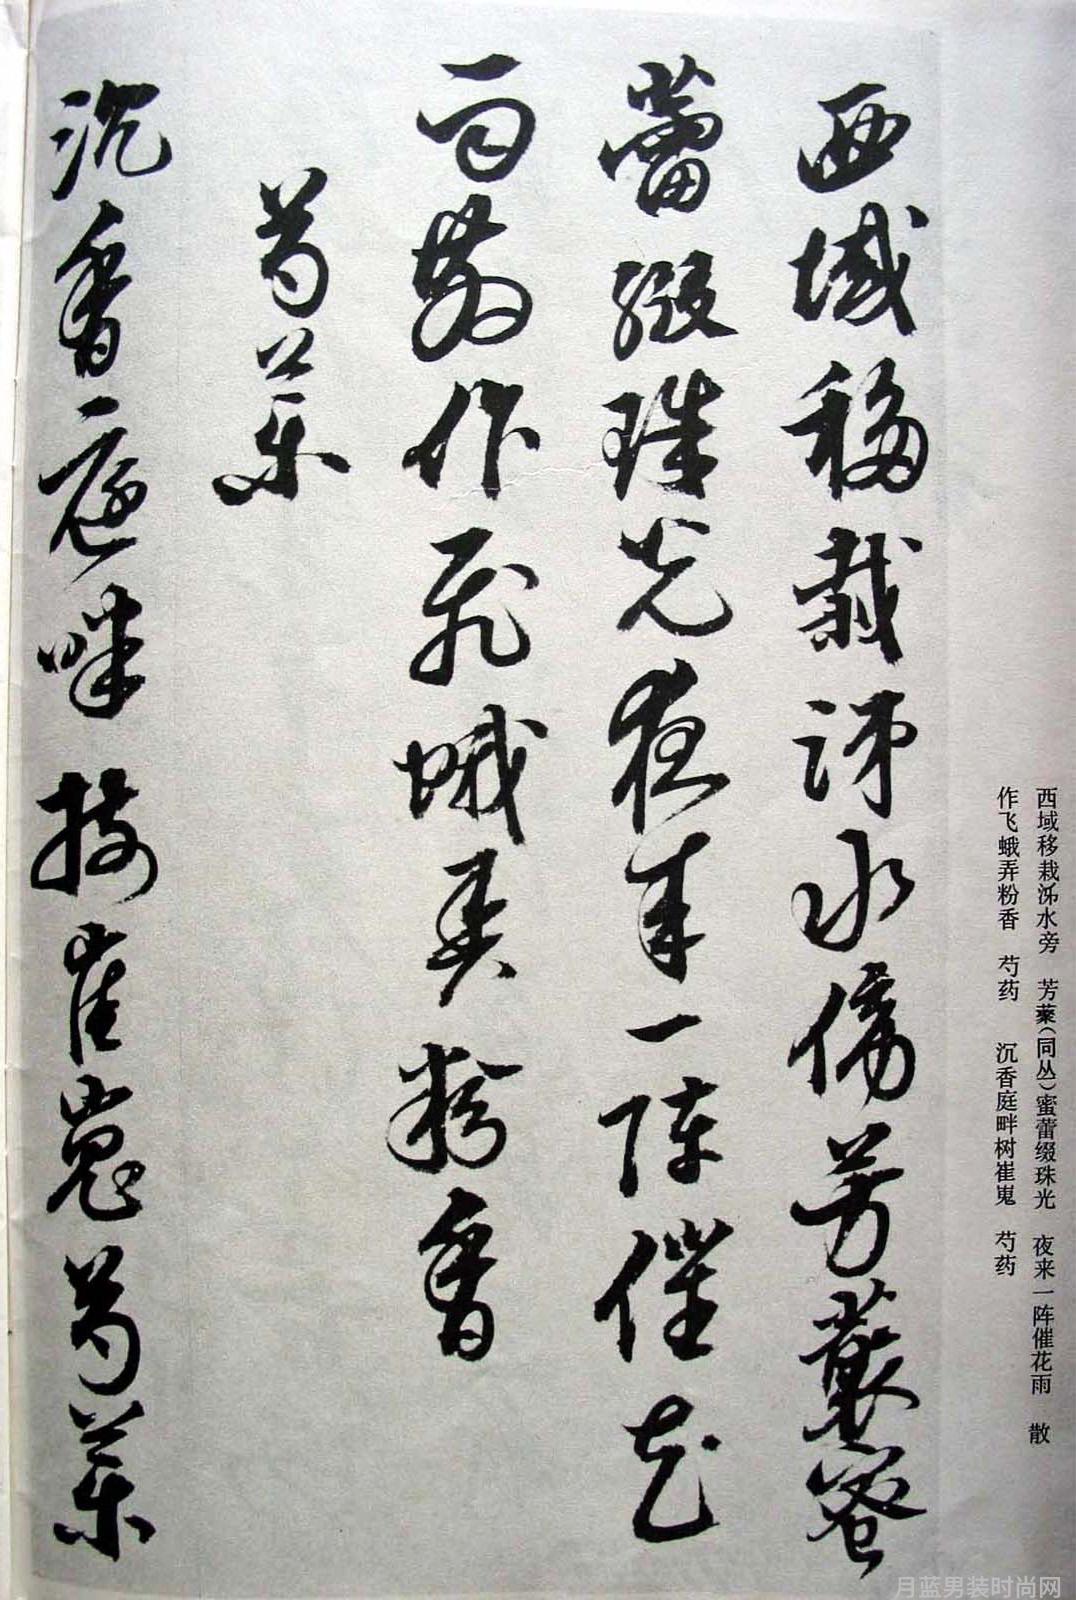 西域移栽泲水旁　芳藂(同丛)蜜蕾缀珠光　夜来一阵催花雨　散
作飞蛾弄粉香　芍药　沉香庭畔树崔嵬　芍药
西域移栽泲水傍芳藂蜜
蕾綴珠光夜来一陣催花
雨散作飛蛾弄粉香
芍藥
沉香庭畔樹崔嵬芍藥
月蓝男装时尚网